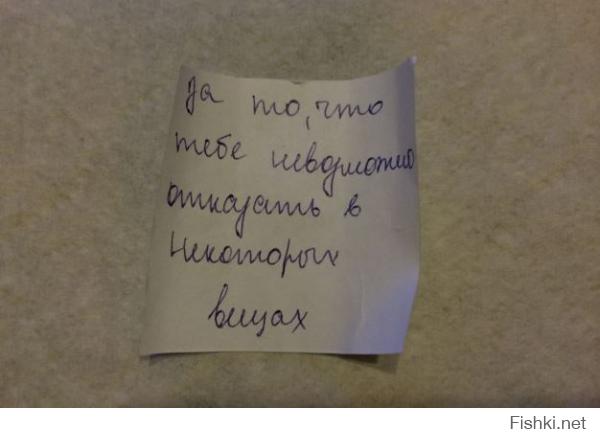 За то, что
тебе невозможно
отказать в
некоторых
вещах
Fishki.net